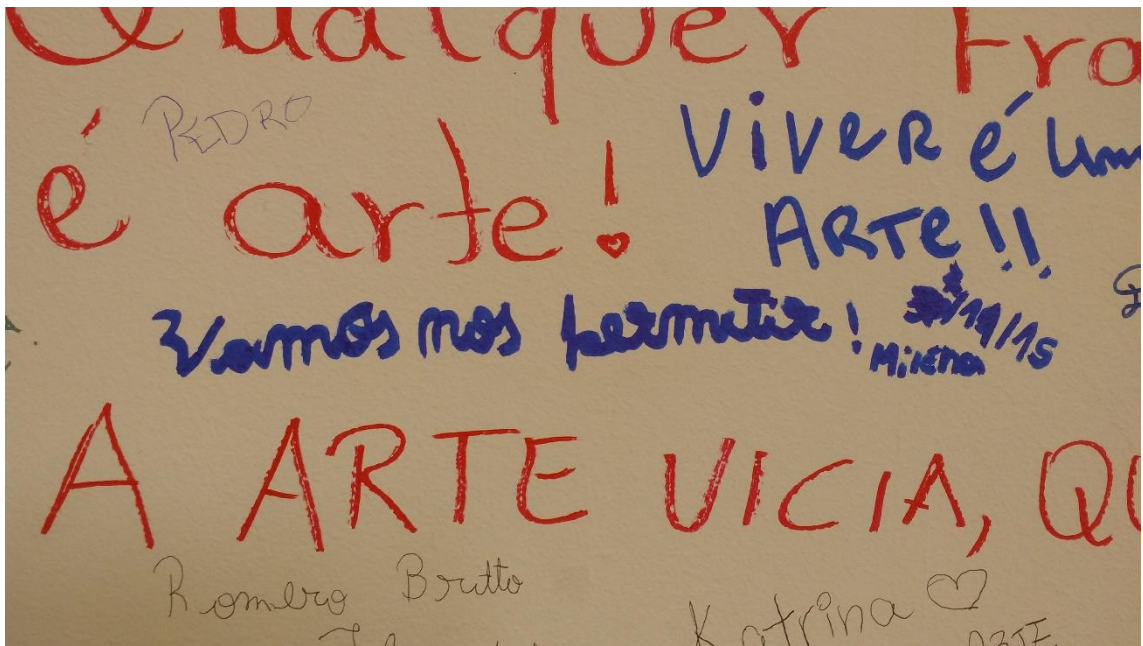 Qualquer
PEDRO
é arte!
Viver é um
ARTE!!
Vamos nos permitir!
Milena
A ARTE VICIA,
Romero Britto
Katrina
ARTE